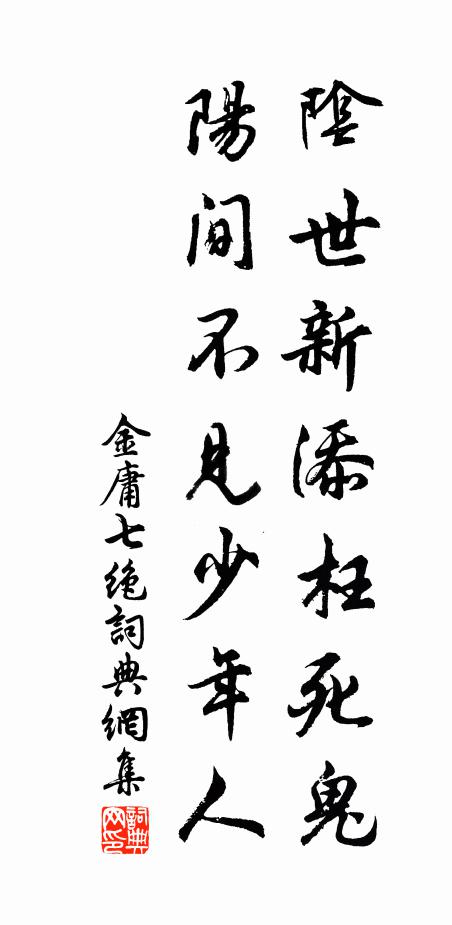 陰世新添枉死鬼
陽間不見少年人
金庸七绝詞典網集
詞典網印